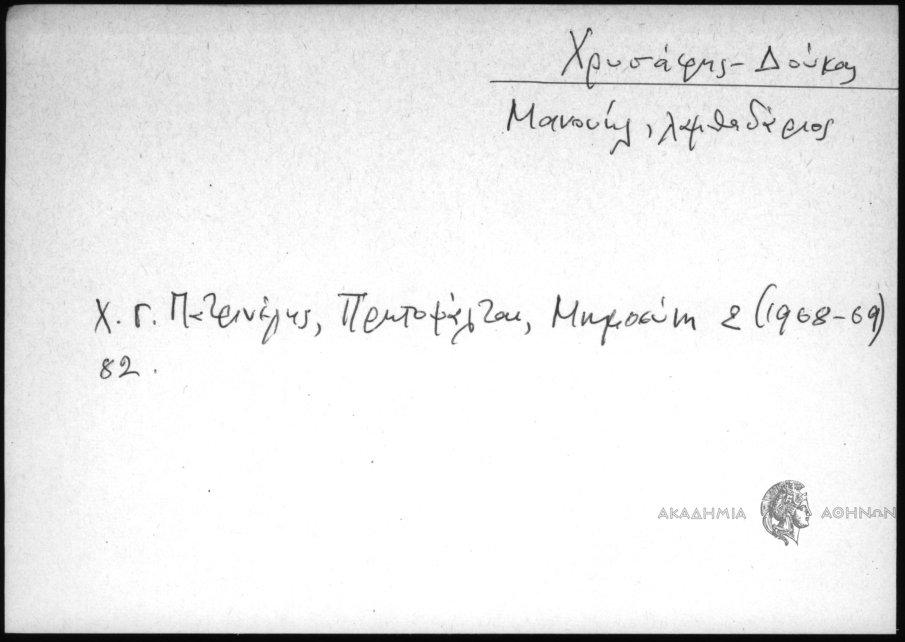 Χρυσάφης - Δούκας
Μανουήλ, λαμπαδάριος
Χ. Γ. Πατρινέλης, Πρωτοψάλται, Μνημοσύνη 2 (1968-69)
82.
ΑΚΑΔΗΜΙΑ ΑΘΗΝΩΝ